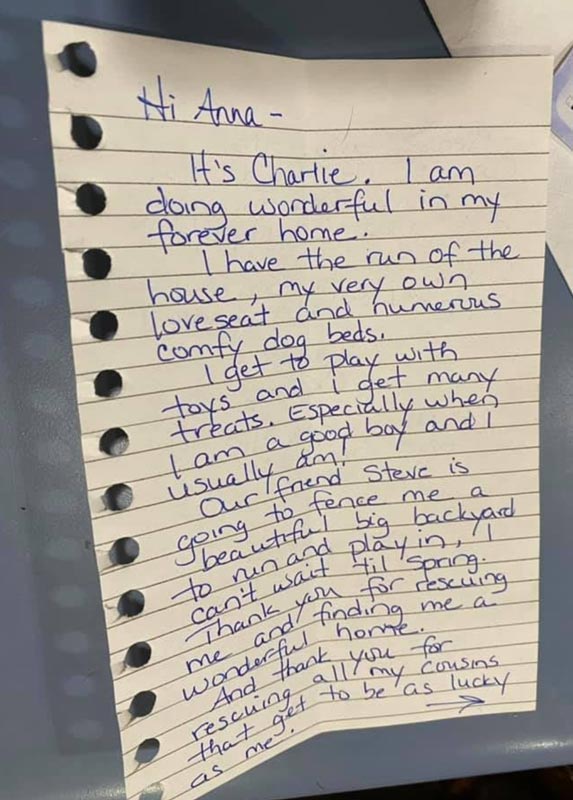 Hi Anna -
It's Charlie. I am
doing wonderful in my
forever home.
I have the run of the
house, my very own
loveseat and numerous
comfy dog beds.
I get to play with
toys and i get many
treats. Especially when
I am a good boy and I
usually am!
Our friend Steve is
going to fence me a
beautiful big backyard
to run and play in, I
can't wait 'til Spring.
Thank you for rescuing
me and finding me a
wonderful home.
And thank you for
rescuing all my cousins
that get to be as lucky
as me. →